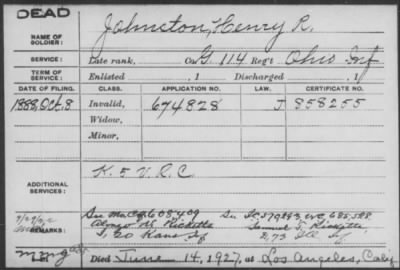 DEAD
NAME OF SOLDIER: Johnston, Henry R.
SERVICE: Late rank, Co G. 114 Reg't Ohio Inf
TERM OF SERVICE: Enlisted , 1 Discharged , 1
DATE OF FILING. CLASS. APPLICATION NO. LAW. CERTIFICATE NO.
1888, Oct. 8 Invalid, 674828 J 858255
Widow,
Minor,
ADDITIONAL SERVICES: K. 5 V. R. C.
REMARKS: See
Alonzo Ricketts Samuel Ricketts
20 Kans Inf 73 Ill Inf
Died June 14, 1927, at Los Angeles, Calif